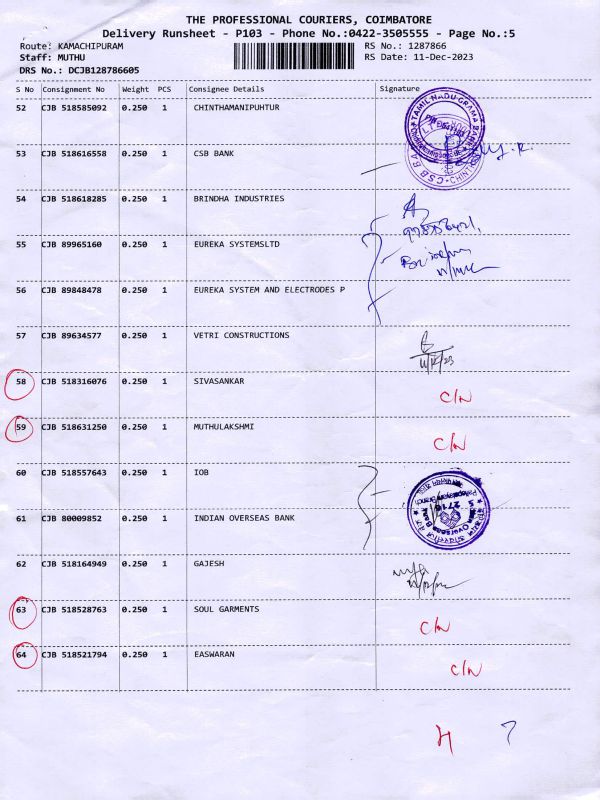 THE PROFESSIONAL COURIERS, COIMBATORE
Delivery Runsheet - P103 - Phone No.:0422-3505555 - Page No.:5
Route: KAMACHIPURAM RS No.: 1287866
Staff: MUTHU RS Date: 11-Dec-2023
DRS No.: DCJB128786605
S No Consignment No Weight PCS Consignee Details Signature
52 CJB 518585092 0.250 1 CHINTHAMANIPUHTUR
53 CJB 518616558 0.250 1 CSB BANK
54 CJB 518618285 0.250 1 BRINDHA INDUSTRIES
55 CJB 89965160 0.250 1 EUREKA SYSTEMSLTD
56 CJB 89848478 0.250 1 EUREKA SYSTEM AND ELECTRODES P
57 CJB 89634577 0.250 1 VETRI CONSTRUCTIONS
58 CJB 518316076 0.250 1 SIVASANKAR C/N
59 CJB 518631250 0.250 1 MUTHULAKSHMI C/N
60 CJB 518557643 0.250 1 IOB
61 CJB 80009852 0.250 1 INDIAN OVERSEAS BANK
62 CJB 518164949 0.250 1 GAJESH
63 CJB 518528763 0.250 1 SOUL GARMENTS C/N
64 CJB 518521794 0.250 1 EASWARAN C/N